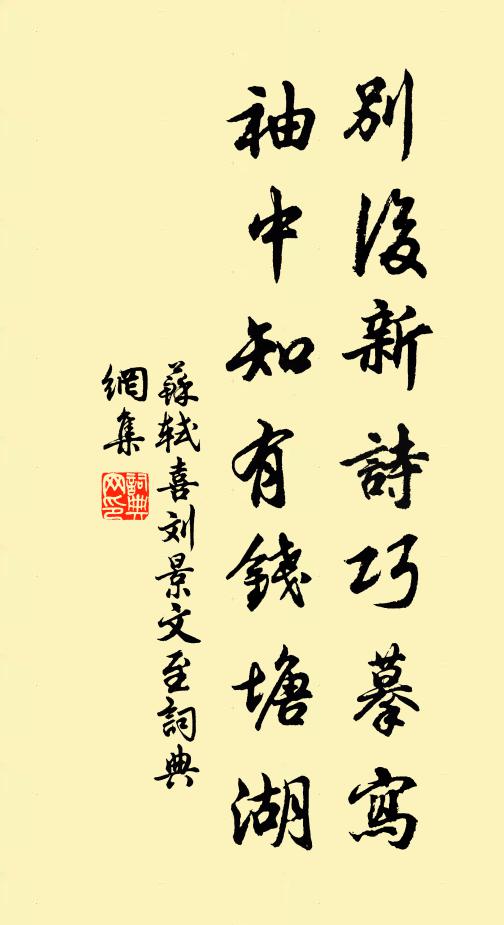 別後新詩巧摹寫
袖中知有錢塘湖
蘇軾喜刘景文至詞典
網集
詞典
网印